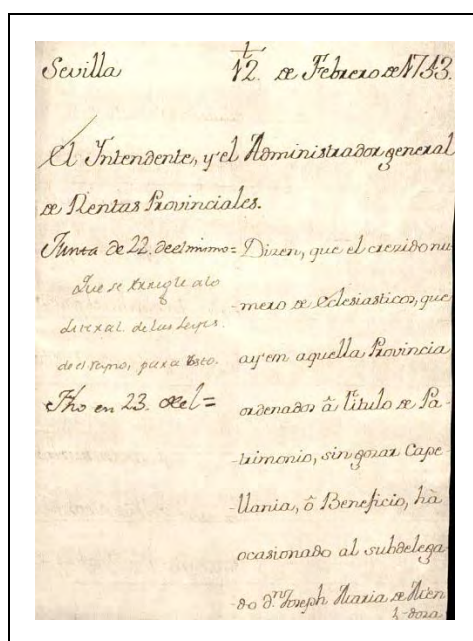 Sevilla 12. de Febrero de 1743.
El Intendente, y el Administrador general
de Rentas Provinciales.
Junta de 22. de el mismo =
Que se arregle a lo
literal de las Leyes
de el reyno, para esto.
Fho en 23. de el =
Dizen, que el crezido nu-
-mero de eclesiasticos, que
ay en aquella Provincia
ordenados â titulo de Pa-
-trimonio, sin gozar Cape-
-llania, ô Beneficio, hà
ocasionado al subdelega-
-do dⁿ Joseph Maria de Men
-doza